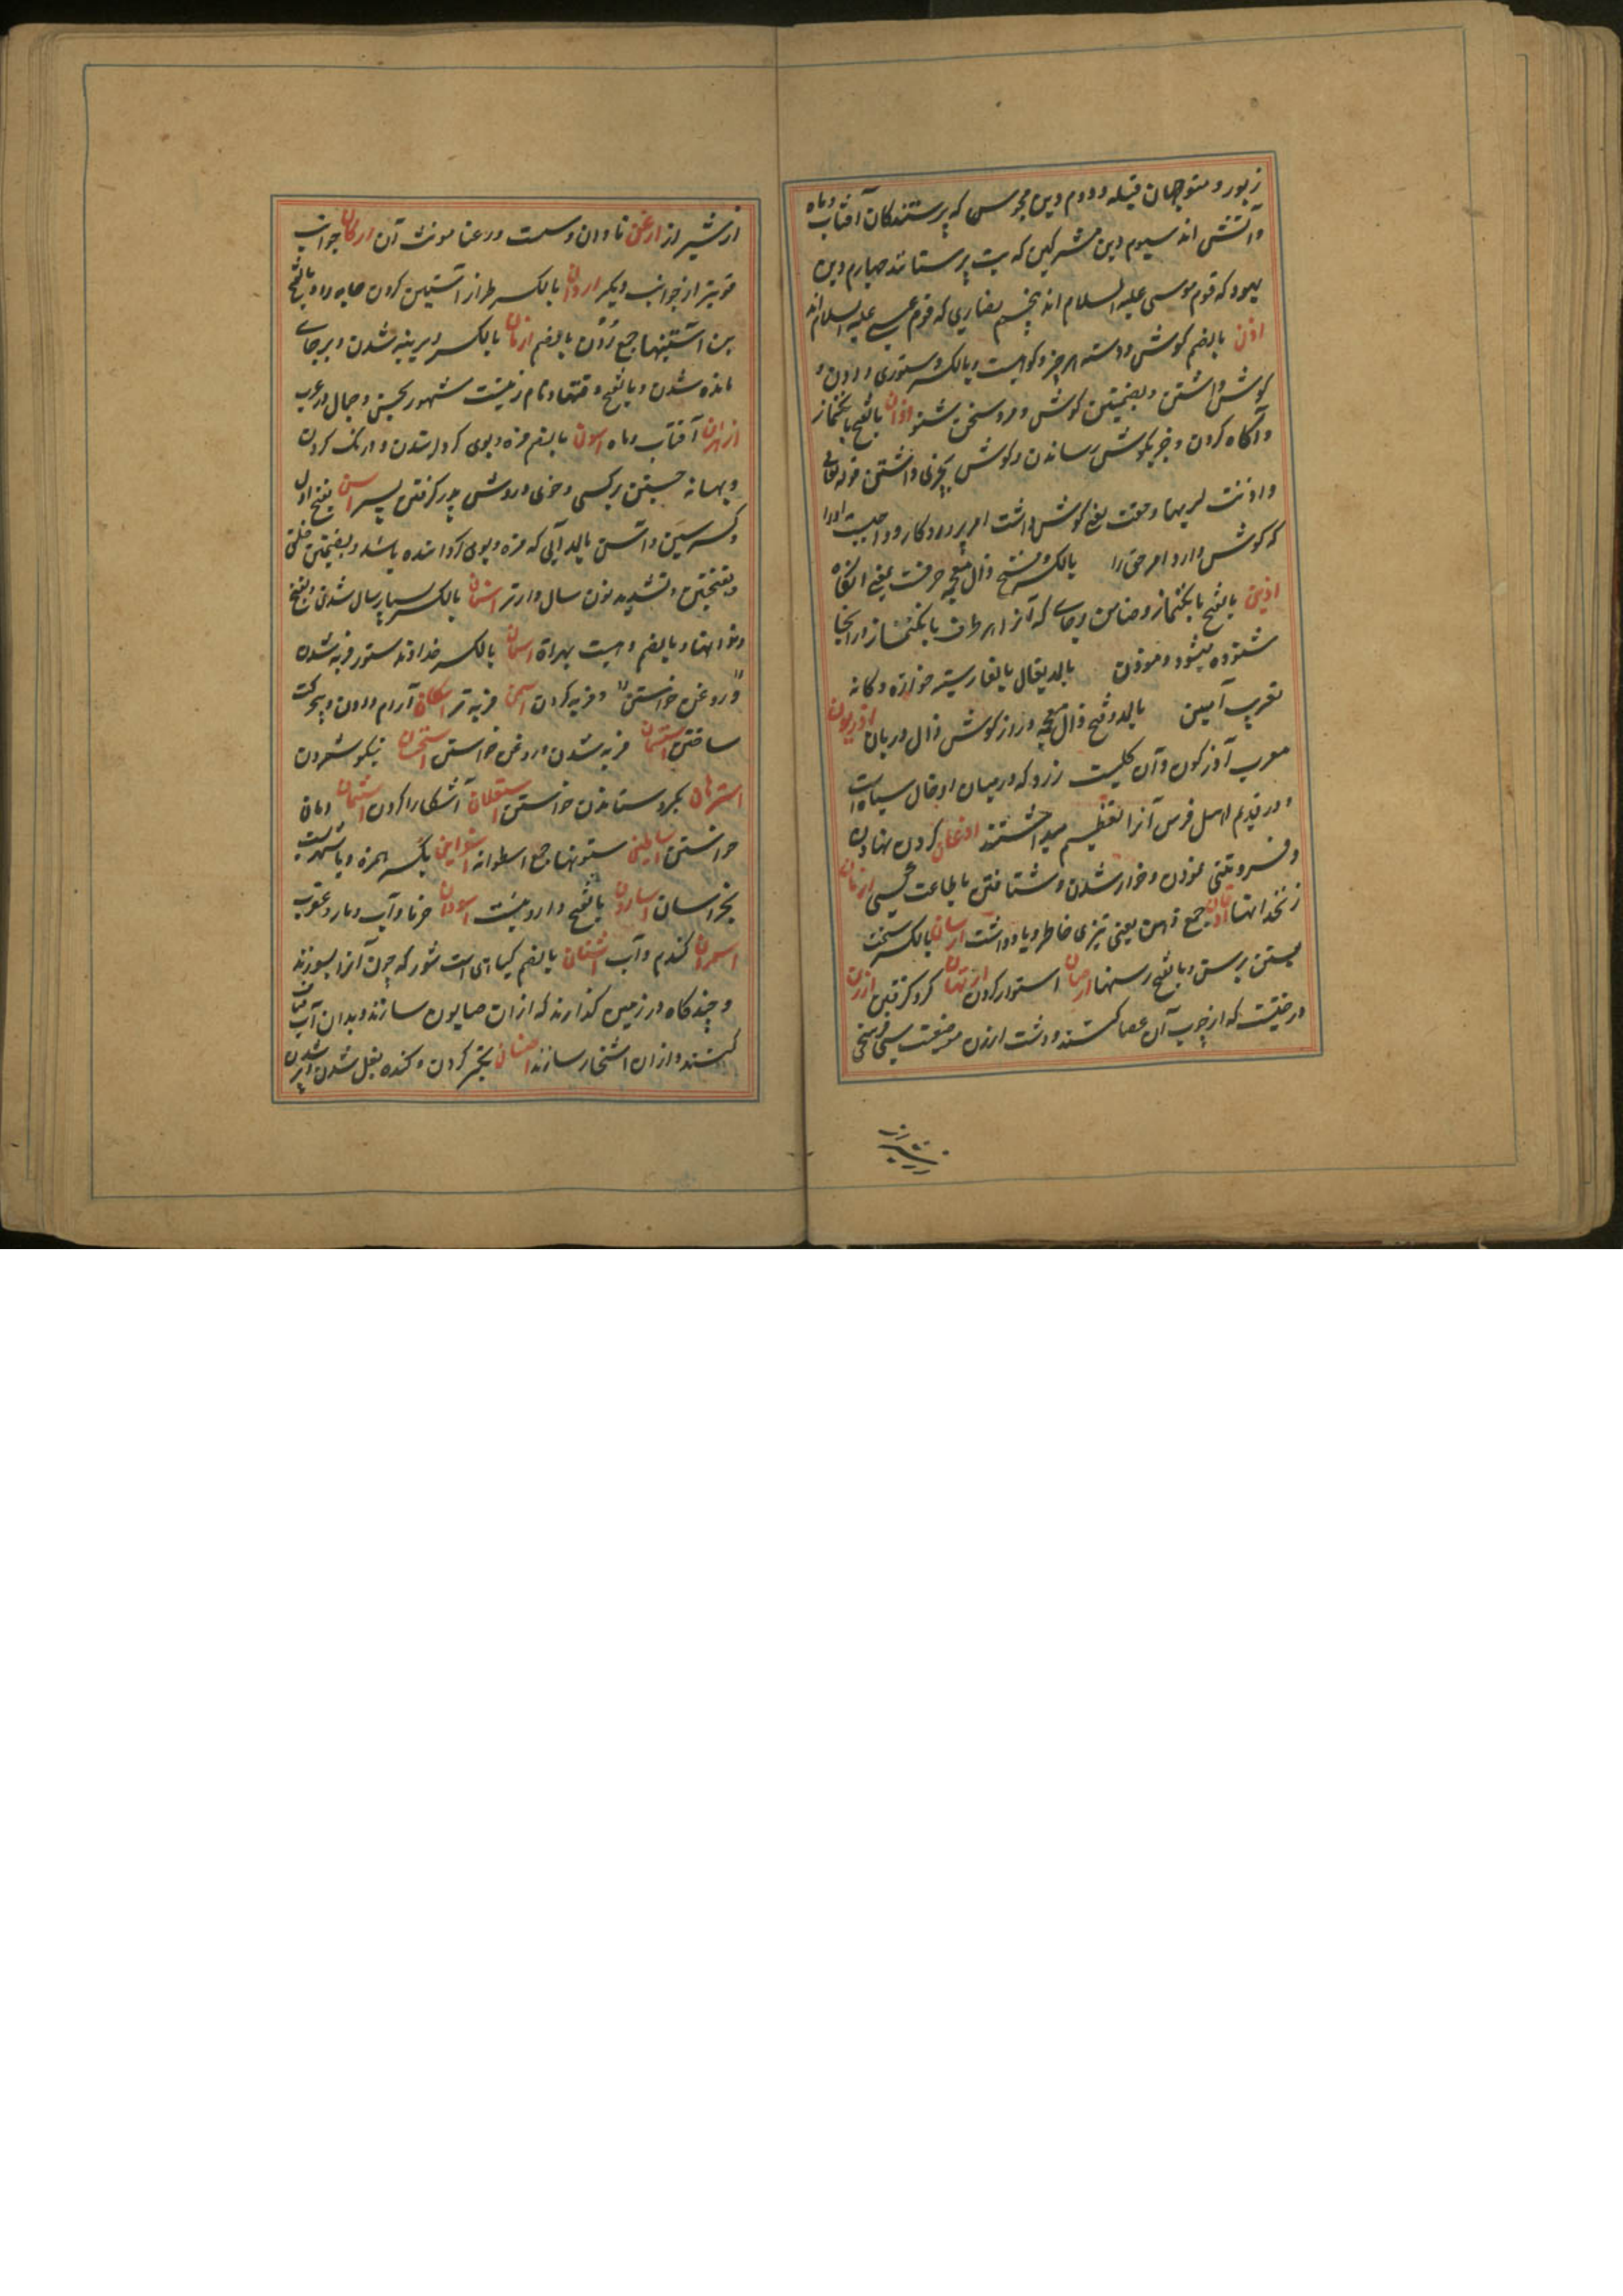 زبور و متوجهان قبله و دوم دین مجوس که پرستندکان آفتاب و ماه
و آتش اند سیوم دین مشرکین که بت پرستانند چهارم دین
یهود که قوم موسی علیه السلام اند پنجم نصاری که قوم عیسی علیه السلام اند
اذن بالضم کوش و دسته هر چیز و کوهیست و بالکسر دستوری دادن و
کوش داشتن و بضمتین کوش و مرد سخن شنو اذان بالفتح بانکنماز
و آکاه کردن و خبر بکوش رساندن و کوش بچیزی داشتن قوله تعالی
و اذنت لربها و حقت یعنی کوش داشت امر پروردکار و واجبست اورا
که کوش دارد امر حق را بالکسر و فتح ذال معجمه حرفست بمعنی آنکاه
اذین بالفتح بانکنماز و ضامن و جای که آنرا هر طرف بانکنماز از آنجا
شنوده میشود و موذن بالمد یقال بالفارسیه خوازه و کانه
تعریب آیین بالمد و فتح ذال معجمه دراز کوش ذال دربان اذریون
معرب آذرکون و آن کلیست زرد که در میان او خال سیاه است
و در قدیم اهل فرس آنرا تعظیم میداشتند اذعان کردن نهادن
و فروتنی نمودن و خوار شدن و شتافتن باطاعت کسی
زنخدانها اذهان جمع ذهن یعنی تیزی خاطر و یادداشت ارسان بالکسر سخت
بستن برسن و بالفتح رسنها ارصان استوار کردن ارتهان کرو کرفتن ارزن
درختیست که از چوب آن عصا کنند و دشت ارزن موضعیست سی فرسخی
از شیراز
از شیراز ارعن نادان و سست و رعنا مونث آن ارکان جوانب
قویتر از جوانب دیکر اردان بالکسر طراز آستین کردن جامه را و بالفتح
بن آستینها جمع رُدن بالضم ازمان بالکسر دیرینه شدن و بر جای
مانده شدن و بالفتح وقتها و نام زنیست مشهور بحسن و جمال در عرب
ازهران آفتاب و ماه اسون بالضم مزه و بوی کردانیدن و درنک کردن
و بهانه جستن بر کسی و خوی و روش پدر کرفتن پسر اسن بفتح اول
و کسر سین و آسن بالمد آبی که مزه و بوی کردانیده باشد و بضمتین خلق
و بفتحتین و تشدید نون سال دارتر اسنان بالکسر بسیار سال شدن و بالفتح
دندانها و بالضم دهیست بهراة اسمان بالکسر خداوند ستور فربه شدن
و روغن خواستن و فربه کردن اسمن فربه تر اسکان آرام دادن و بیحرکت
ساختن استسمان فربه شدن و روغن خواستن استحسان نیکو شمردن
استرهان بکرو ستاندن خواستن استعلان آشکارا کردن استیمان امان
خواستن اساطین ستونها جمع اسطوانه اسفراین بکسر همزه و یا شهریست
بخراسان اسارون بالفتح داروییست اسودان خرما و آب و مار و عقرب
اسمران کندم و آب اشنان بالضم کیاهی است شور که چون آنرا بسوزند
و چند کاه در زمین کذارند که از آن صابون سازند و بدان آب
کشند و از آن اشخار سازند اصنان تکبر کردن و کنده بغل شدن و پر شدن